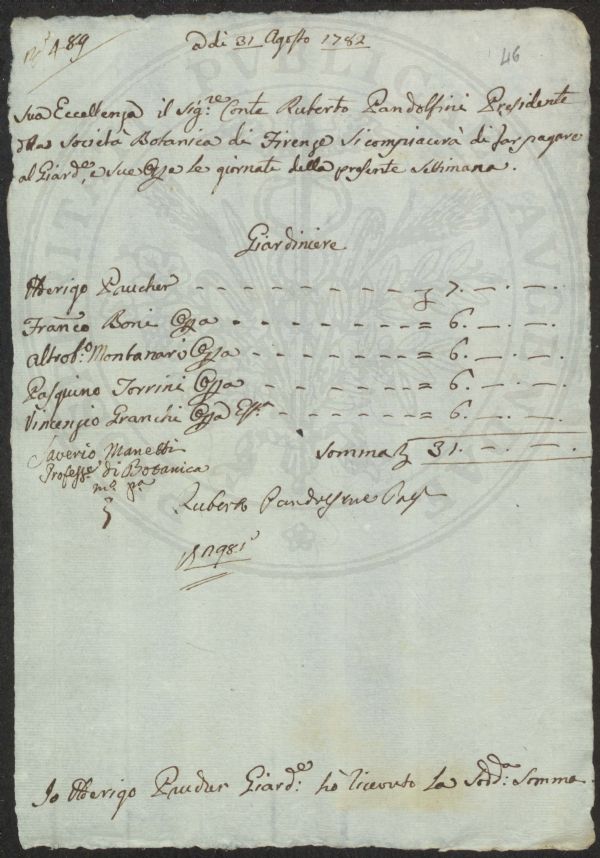 N.º 489
adi 31 Agosto 1782
46
Sua Eccellenza il Sig.re Conte Ruberto Pandolfini Presidente
della Società Botanica di Firenze si compiacerà di far pagare
al Giard.e, e sue Opre le giornate della presente Settimana.
Giardiniere
Atterigo 7.—.—.
Franc.o Boni Opra = 6.—.—.
Altro b.o Montanari Opra = 6.—.—.
Pasquino Torrini Opra = 6.—.—.
Vincenzio Granchi Opra = 6.—.—.
Saverio Manetti Somma 31.—.—.
Profess.e di Botanica
m.o p.a
Ruberto Pandolfini
Io Atterigo Giard.e hò riceuto la Sud.a Somma
PVBLICAE